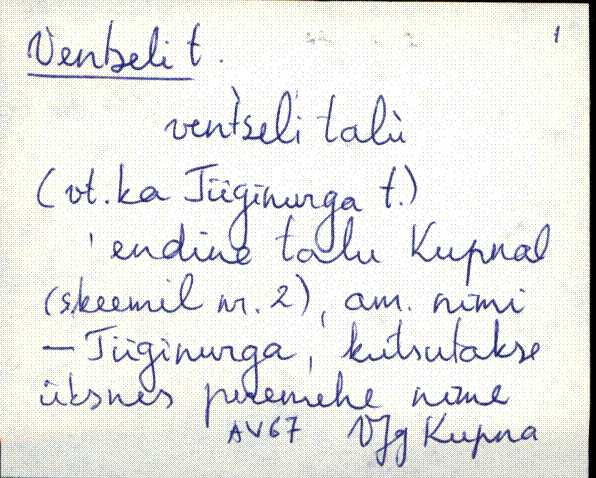 Ventseli t. 1
ventseli talu
(vt. ka Tiiginurga t.)
'endine talu Kupnal
(skeemil nr. 2), am. nimi
— Tiiginurga, kutsutakse
üksnes peremehe nime
AV67 VJg Kupna